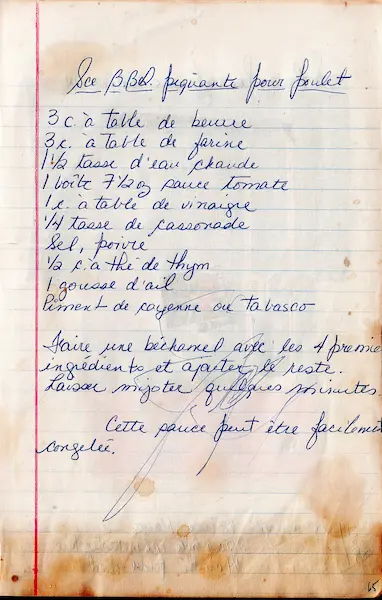 Sce B.B.Q. piquante pour poulet
3 c. à table de beurre
3 c. à table de farine
1 1/2 tasse d'eau chaude
1 boîte 7 1/2 oz sauce tomate
1 c. à table de vinaigre
1/4 tasse de cassonade
Sel, poivre
1/2 c. à thé de thym
1 gousse d'ail
Piment de cayenne ou tabasco
Faire une béchamel avec les 4 premie
ingrédients et ajouter le reste.
Laisser mijoter quelques minutes
Cette sauce peut être facilement
congelée.
65